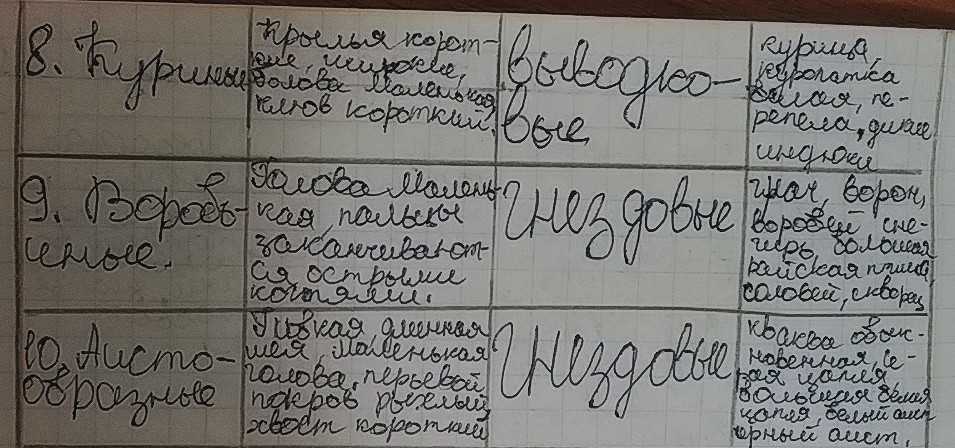 8. Куриные
Крылья корот-
кие, широкие,
голова маленькая,
клюв короткий.
выводко-
вые
курица,
куропатка
белая, пе-
репела, дикие
индюки
9. Воробь-
иные.
Голова малень-
кая, пальцы
заканчивают-
ся острыми
когтями.
Гнездовые
грач, ворон,
воробей, сне-
гирь, большая
райская птица,
соловей, скворец
10. Аисто-
образные
Гибкая длинная
шея, маленькая
голова, перьевой
покров рыхлый,
хвост короткий
Гнездовые
кваква обык-
новенная, се-
рая цапля,
большая белая
цапля, белый аист
черный аист.